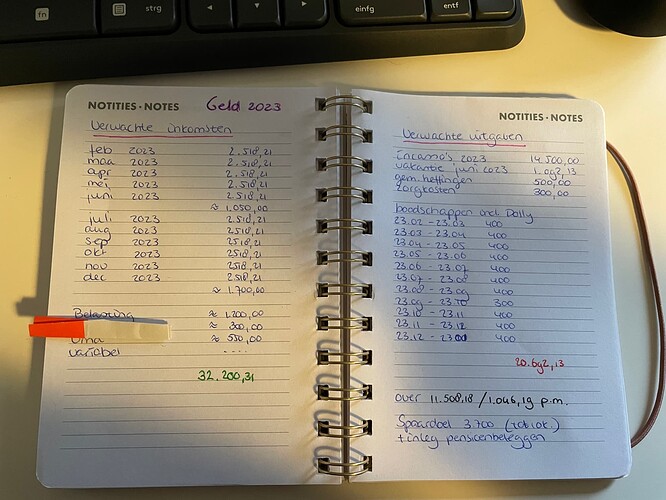 fn
strg
einfg
entf
NOTITIES • NOTES Geld 2023
Verwachte inkomsten
feb 2023 2.518,21
maa 2023 2.518,21
apr 2023 2.518,21
mei 2023 2.518,21
juni 2023 2.518,21
≈ 1.050,00
juli 2023 2.518,21
aug 2023 2518,21
sep 2023 2518,21
okt 2023 2518,21
nov 2023 2518,21
dec 2023 2518,21
≈ 1.700,00
Belasting ≈ 1.200,00
≈ 300,00
≈ 550,00
variabel ....
32.200,31
NOTITIES • NOTES
Verwachte uitgaven
incasso's 2023 14.500,00
vakantie juni 2023 1.092,13
gem. heffingen 500,00
zorgkosten 300,00
boodschappen incl. Dolly
23.02 - 23.03 400
23.03 - 23.04 400
23.04 - 23.05 400
23.05 - 23.06 400
23.06 - 23.07 400
23.07 - 23.08 400
23.08 - 23.09 400
23.09 - 23.10 300
23.10 - 23.11 400
23.11 - 23.12 400
23.12 - 400
20.692,13
over 11.508,18 / 1.046,19 p.m.
Spaardoel 3.700
+ inleg pensioenbeleggen